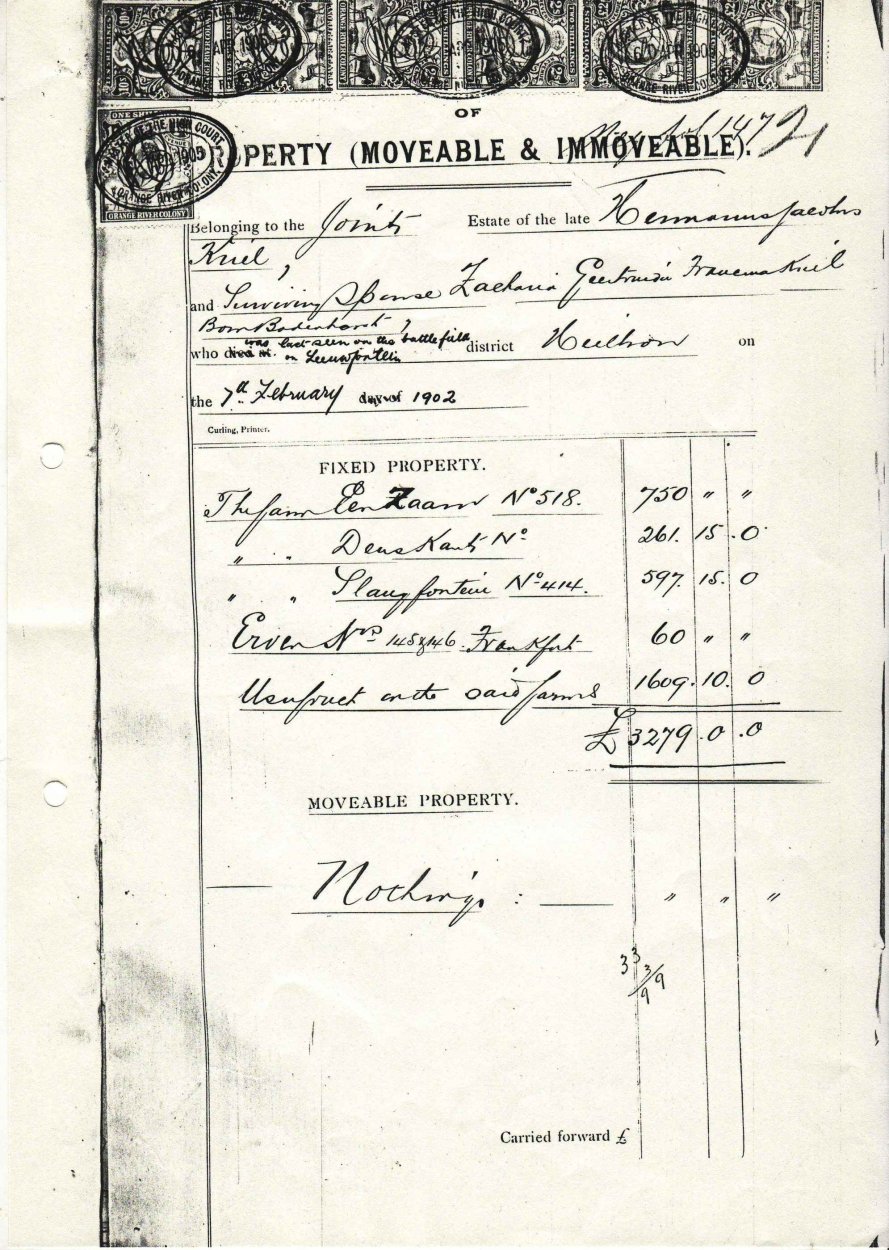 OF
PROPERTY (MOVEABLE & IMMOVEABLE).
ONE SHILLING
MASTER OF THE HIGH COURT
APR 1905
ORANGE RIVER COLONY
ORANGE RIVER COLONY
Belonging to the Joint Estate of the late Hermanus Jacobus
Kriel,
and Surviving Spouse Zacharia Geertruida Francina Kriel
Born Badenhorst,
was last seen on the battlefield
who died at on Leeuwfontein district Heilbron on
the 7th February day of 1902
Curling, Printer.
FIXED PROPERTY.
The farm Een Zaam No 518. 750 " "
" " Deus Kant No 261. 15. 0
" " Slangfontein No 414. 597. 15. 0
Erven Nos 145 & 146 Frankfort 60 " "
Usufruct on the said farms 1609. 10. 0
£ 3279. 0. 0
MOVEABLE PROPERTY.
Nothing : " " "
33
3/9
9
Carried forward £